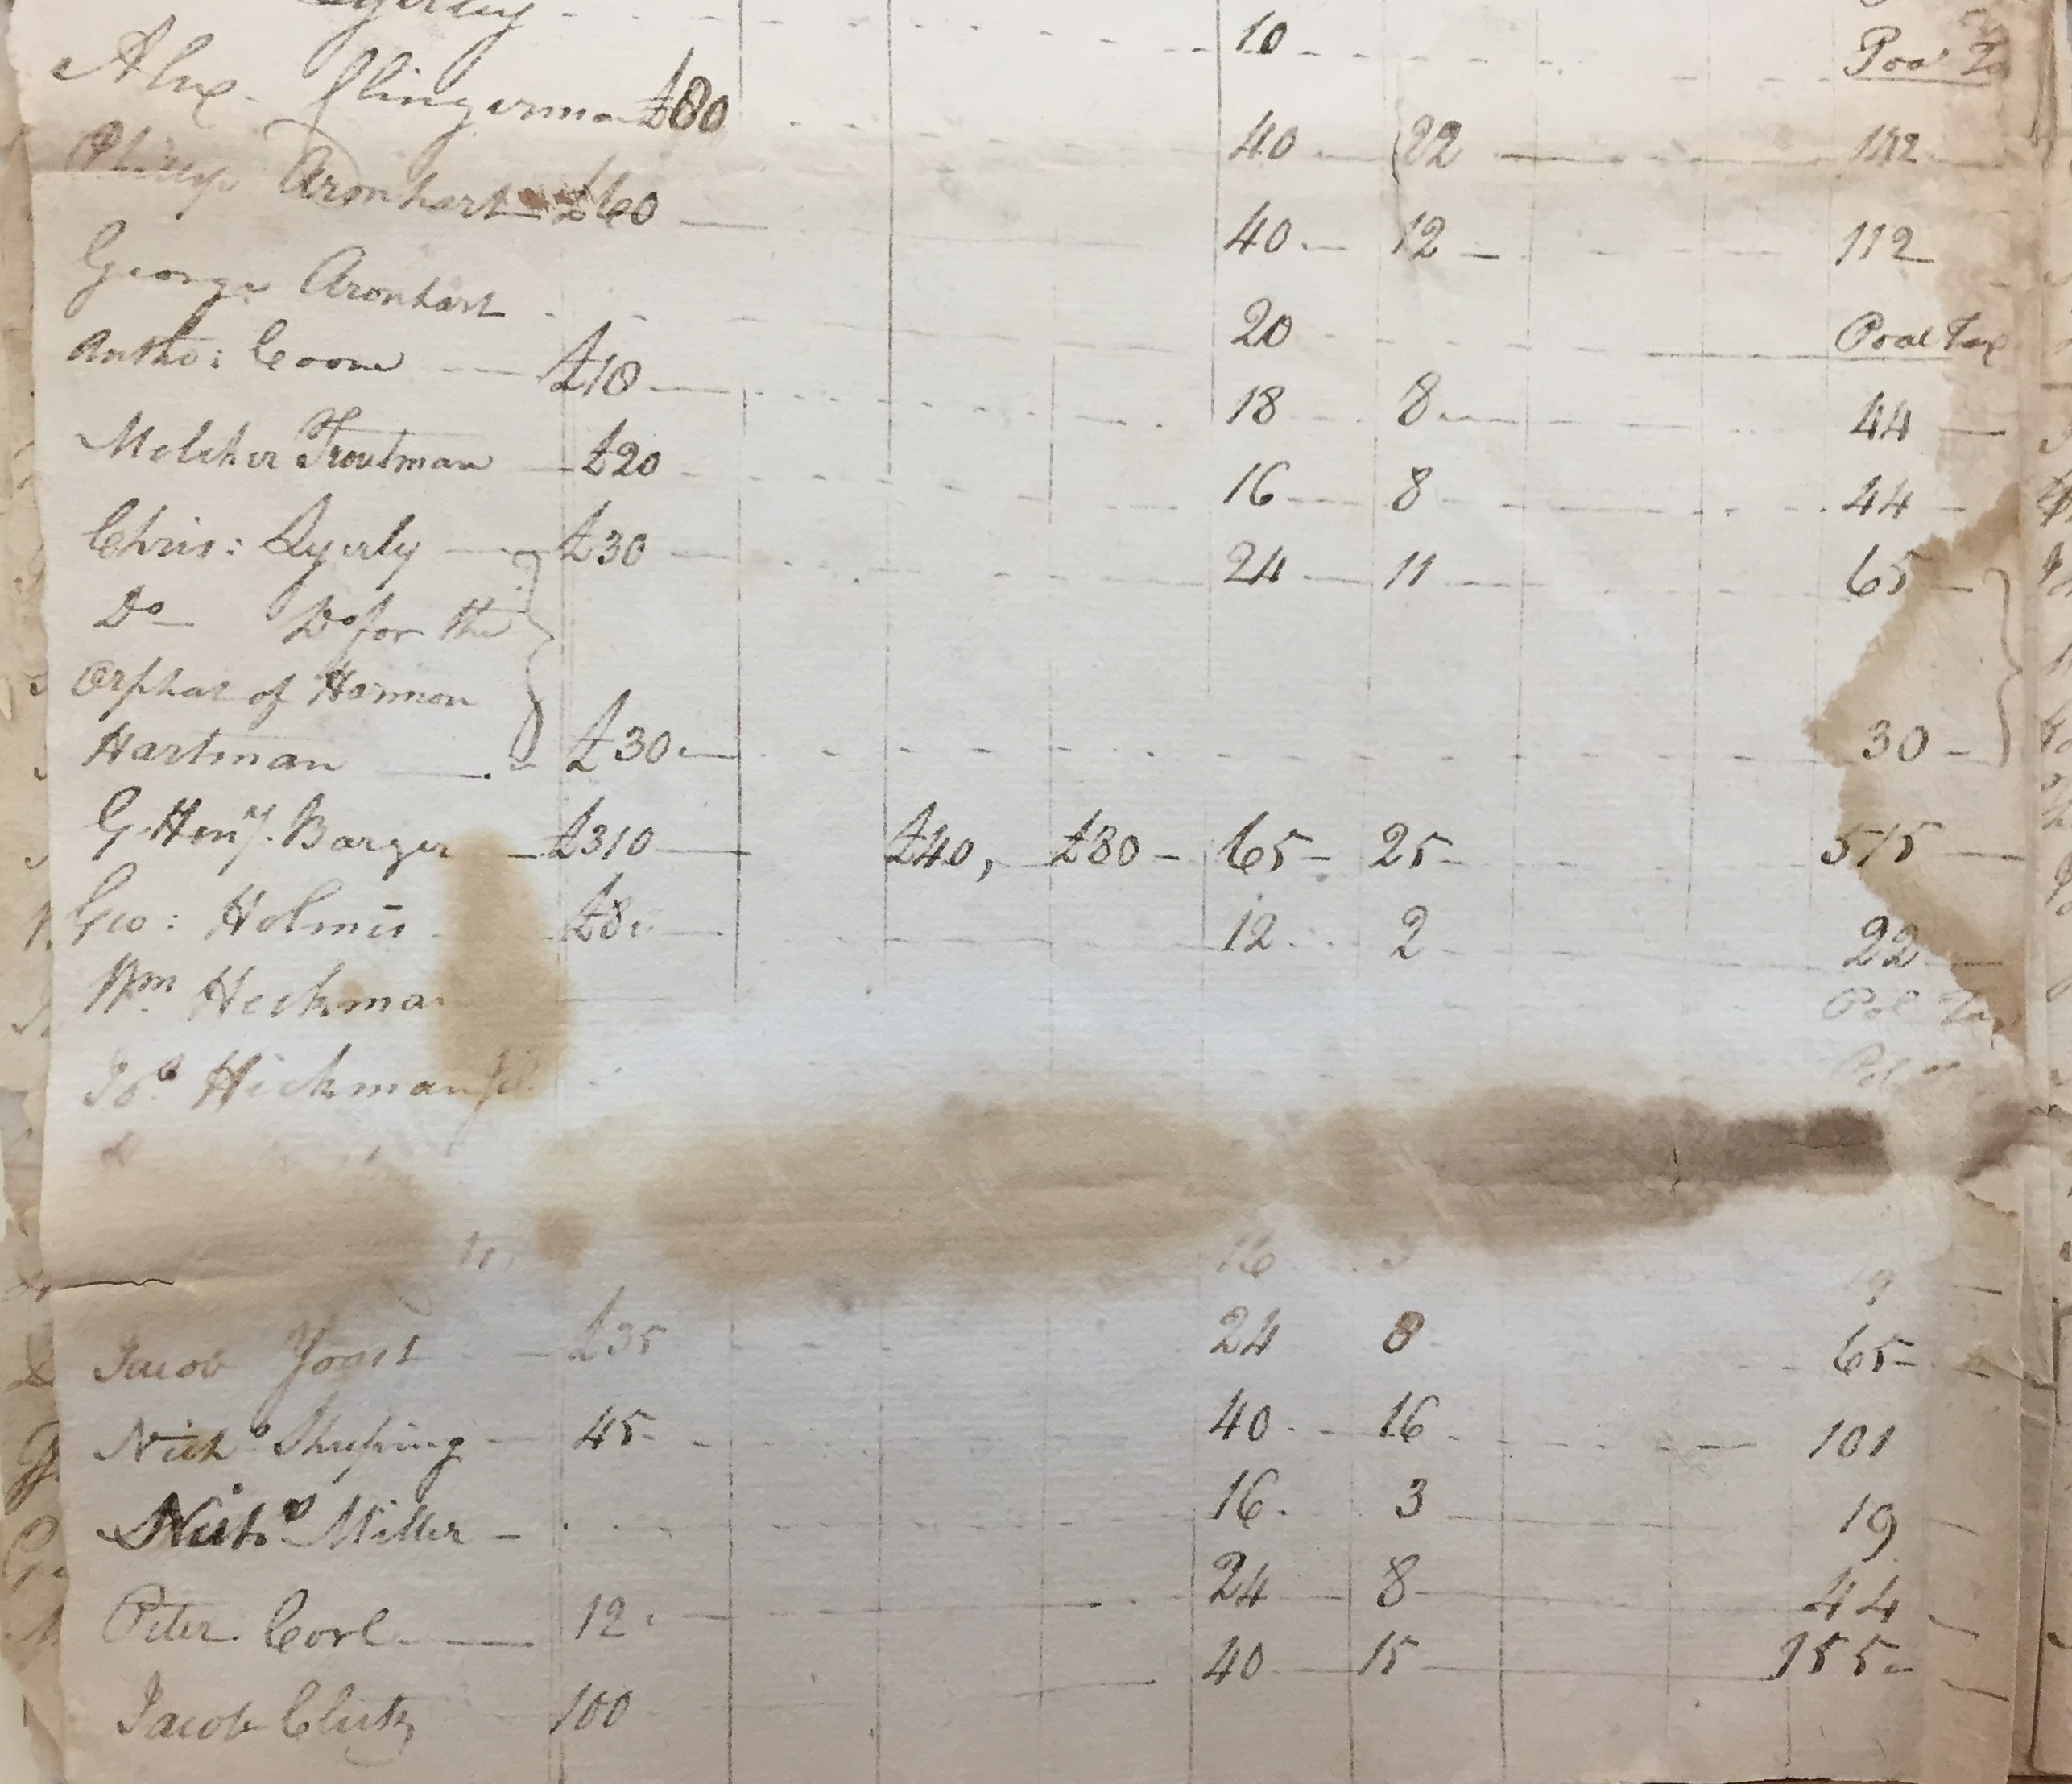 Lyerly - 10 Poal Ta
Alex. Clingerman £80 40 22 142
Philip Aronhart £60 40 12 112
George Aronhart 20 Poal Tax
Antho: Coons £18 18 8 44
Melcher Troutman £20 16 8 44
Chris: Lyerly £30 24 11 65
Do Do for the
Orphas of Harmon
Hartman £30 30
G. Heny. Barger £310 £40, £80 65 25 515
Geo: Holmes £8 12 2 22
Wm Heckman Pol Tax
Hickman Pol
16 3 19
Jacob Yoast £35 24 8 65
Nichs Shuping 45 40 16 101
Nichs Miller 16 3 19
Peter Corl 12 24 8 44
Jacob Clutz 100 40 15 155